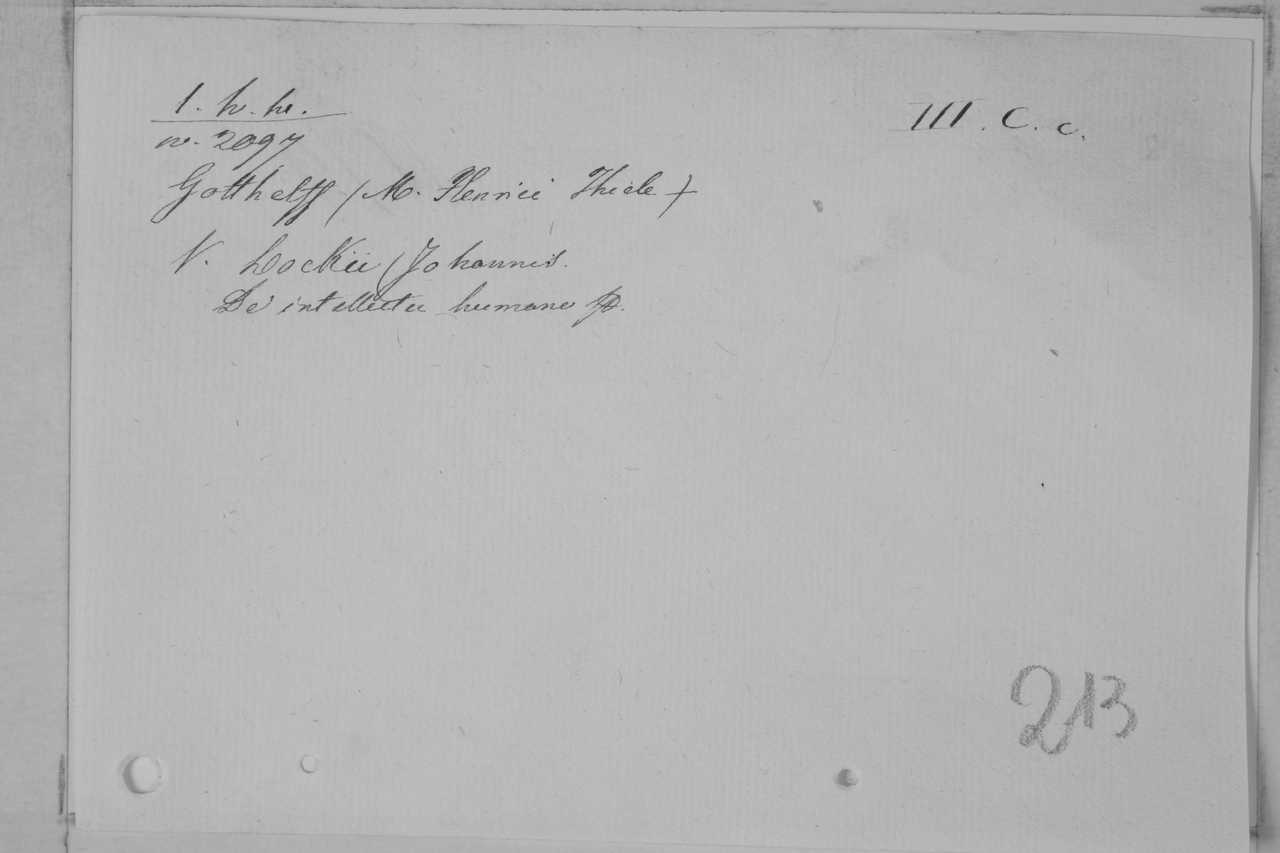 1. h. h.
III. C. c.
n. 2097
Gotthelff (M. Henrici Thiele)
V. Lockii (Johannis.
De intellectu humano
213